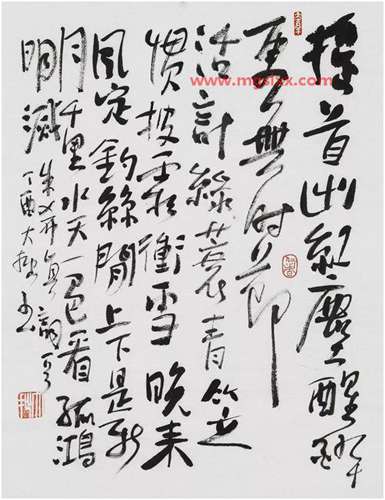 搖首出紅塵醒醉
更無時節
活計綠蓑青笠
慣披霜衝雪晚來
風定釣絲閒上下是新
月千里水天一色看孤鴻
明滅 朱希真詞
丁酉大